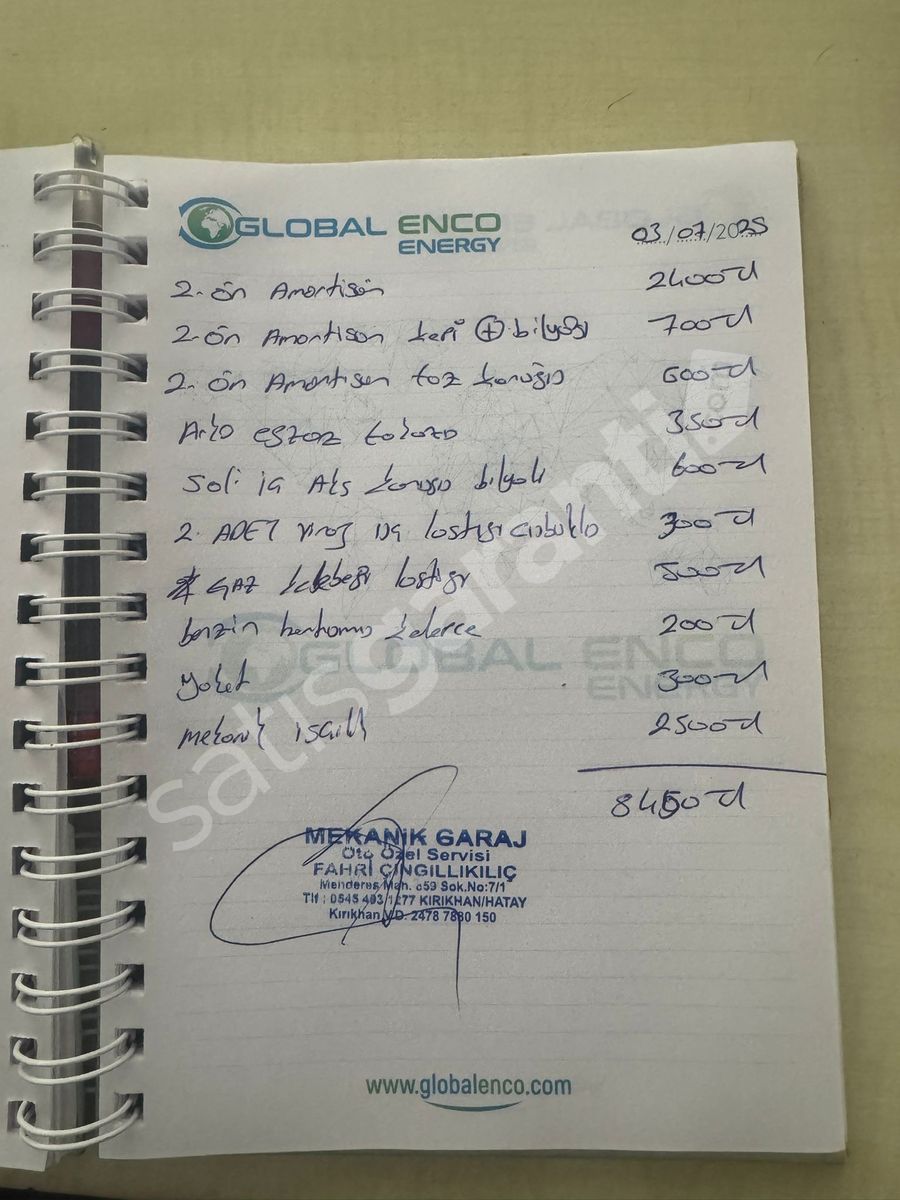 GLOBAL ENCO
ENERGY
03/07/2025
2- ön Amortisör 2400TL
2- ön Amortisör kepi + bilyası 700TL
2- ön Amortisör toz körüğü 600TL
Arka egzoz takozu 350TL
Sol iç Aks körüğü bilyalı 600TL
2. ADET viraj lastiği 300TL
GAZ kelebeği lastiği 500TL
benzin kelepçe 200TL
yakıt 300TL
mekanik işçilik 2500TL
8450TL
MEKANİK GARAJ
Oto Özel Servisi
FAHRİ ÇINGILLIKILIÇ
Menderes Mah. 659 Sok.No:7/1
Tlf : 0545 493 1277 KIRIKHAN/HATAY
Kırıkhan V.D. 2478 7880 150
satisgaranti.com
GLOBAL ENCO
ENERGY
www.globalenco.com